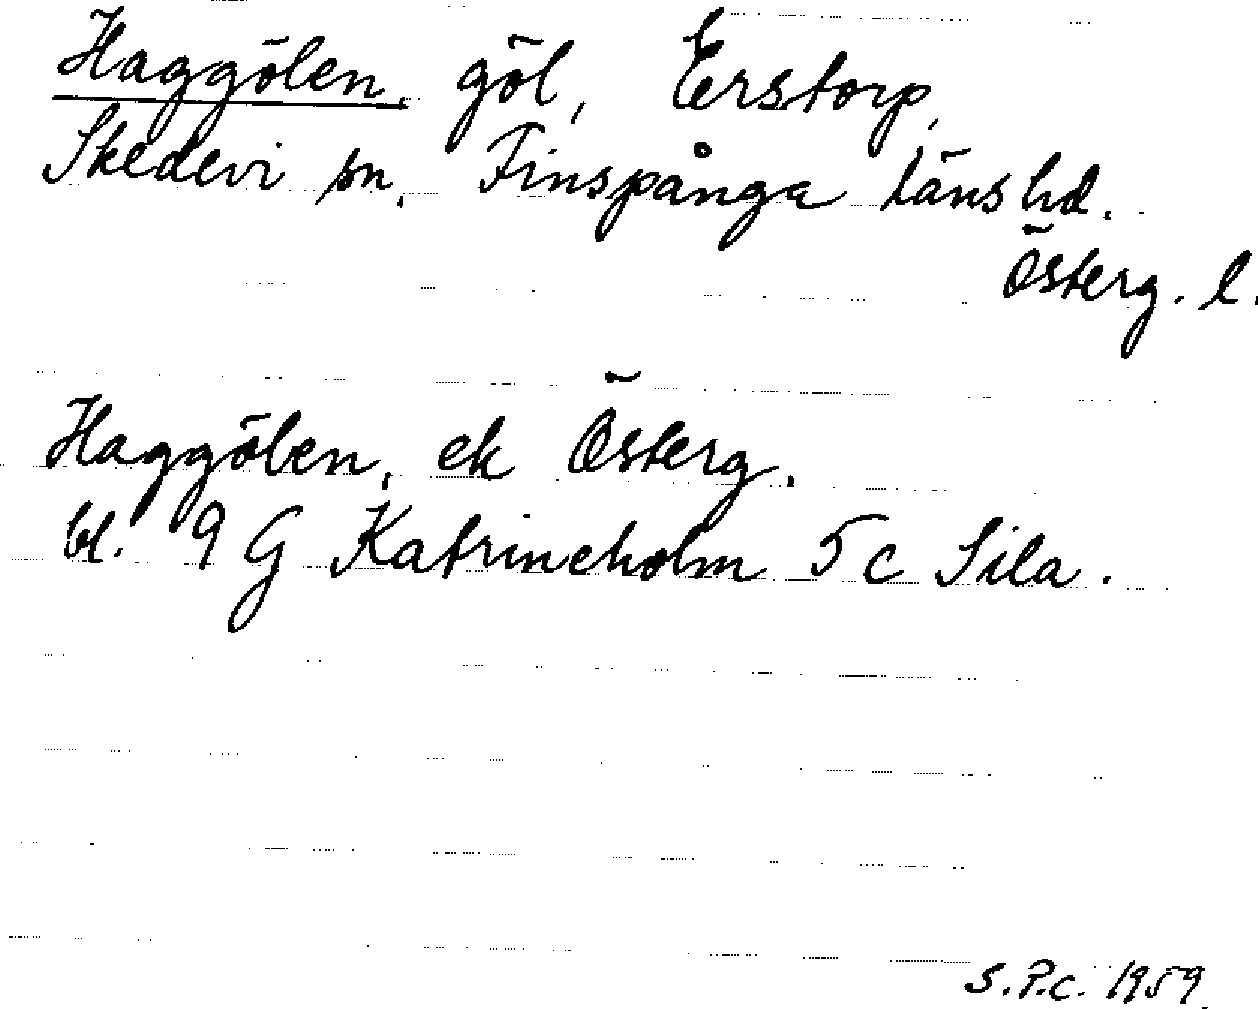 Haggölen, göl, Erstorp,
Skedevi sn, Finspånga läns hd.
Österg. l.
Haggölen, ek Österg.
bl. 9 G Katrineholm 5 c Sila.
S.P.c. 1959.